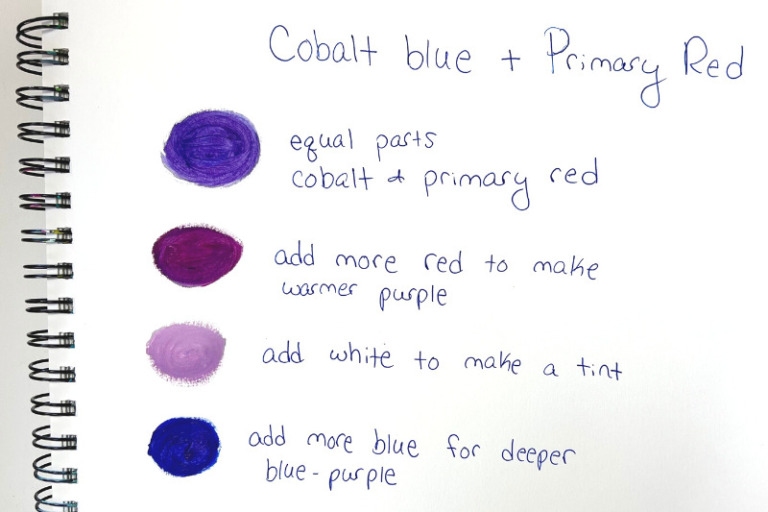 Cobalt blue + Primary Red
equal parts
cobalt & primary red
add more red to make
warmer purple
add white to make a tint
add more blue for deeper
blue-purple